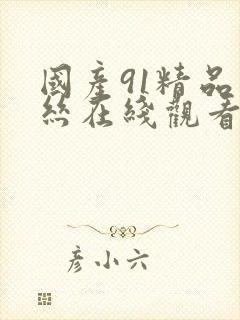 國產91精品
絲在綫觀看
彦小六